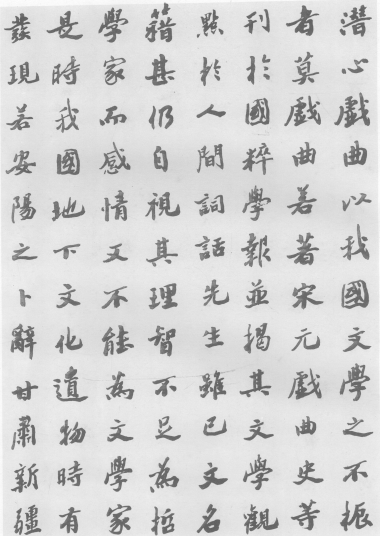 潛心戲曲以我國文學之不振
者莫戲曲若著宋元戲曲史等
刊於國粹學報並揭其文學觀
點於人間詞話先生雖已文名
籍甚仍自視其理智不足為哲
學家而感情又不能為文學家
是時我國地下文化遺物時有
發現若安陽之卜辭甘肅新疆